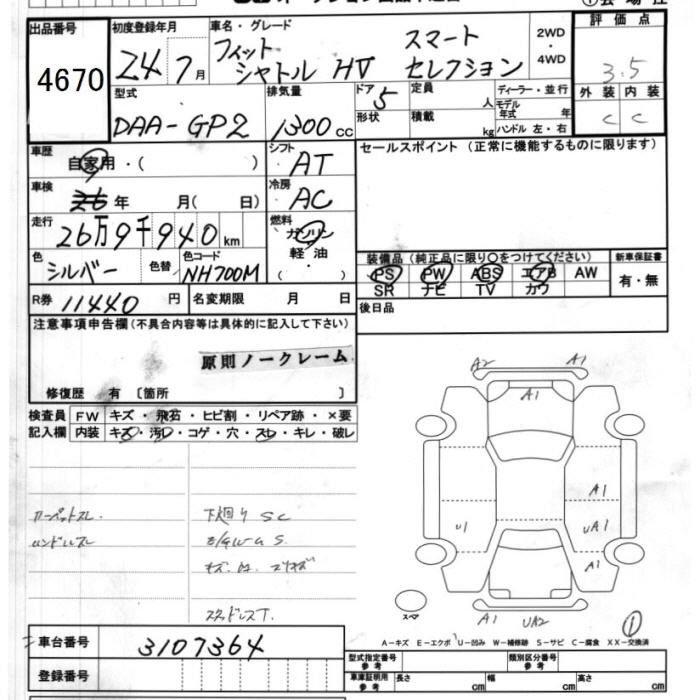 出品番号
4670
初度登録年月
24 7月
車名・グレード
フィット スマート
シャトル HV セレクション
2WD
・
4WD
評価点
3.5
外装 内装
C C
型式
DAA-GP2
排気量
1300 cc
ドア 5
形状
定員 人
積載 kg
ディーラー・並行
モデル年式 年
ハンドル 左・右
車歴
自家用・( )
シフト
AT
セールスポイント (正常に機能するものに限ります)
車検
26年 月( 日)
冷房
AC
走行
26万9千940 km
燃料
ガソリン
軽油
( )
色
シルバー
色替
色コード
NH700M
装備品(純正品に限り○をつけてください)
PS PW ABS エアB AW
SR ナビ TV カワ
新車保証書
有・無
R券 11440 円
名変期限 月 日
後日品
注意事項申告欄(不具合内容等は具体的に記入して下さい)
原則ノークレーム
修復歴 有 〔箇所 〕
検査員
記入欄
FW キズ・飛石・ヒビ割・リペア跡・×要
内装 キズ・汚レ・コゲ・穴・スレ・キレ・破レ
カーペットスレ
ハンドルスレ
下廻り SC
スタッドレスT.
A2 A1
A1
A1
U1 UA1
A1
スペア
A1 UA2
1
A-キズ E-エクボ U-凹み W-補修跡 S-サビ C-腐食 XX-交換済
車台番号
3107364
登録番号
型式指定番号
参考
類別区分番号
参考
車庫証明用
参考
長さ cm
幅 cm
高さ cm